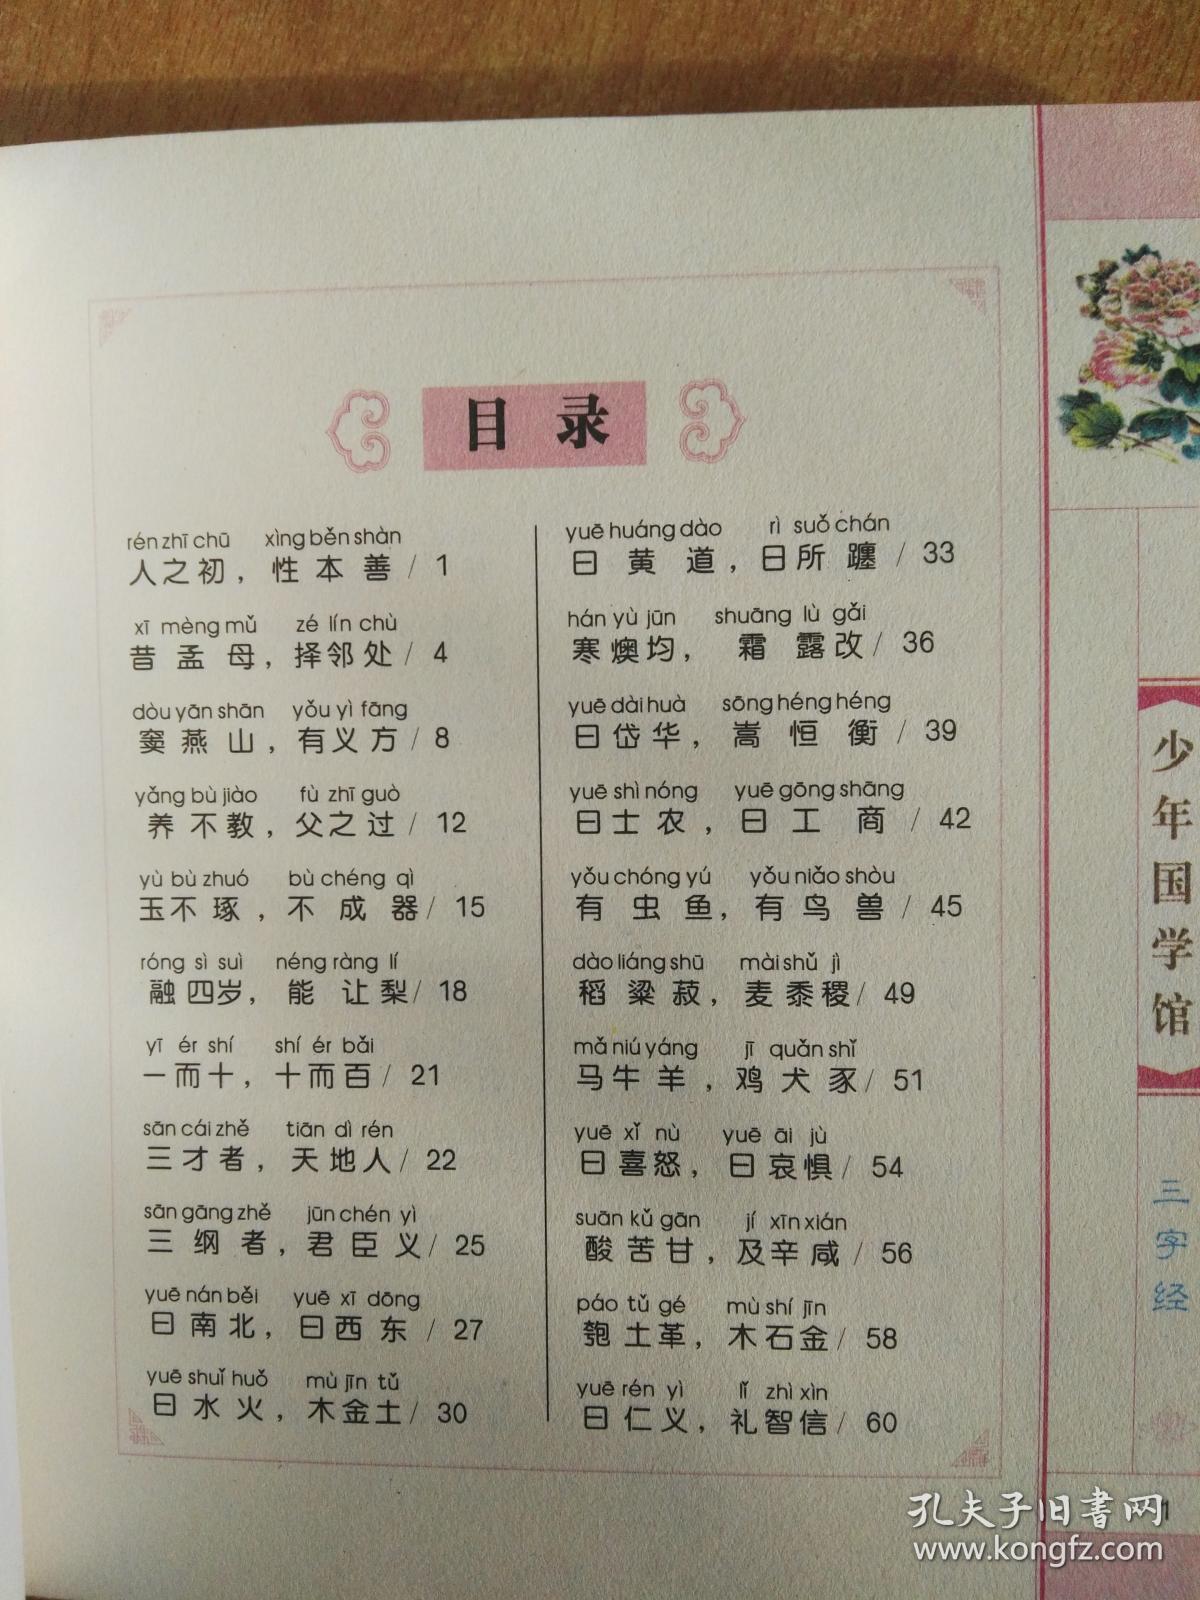 目录
rén zhī chū xìng běn shàn
人之初，性本善/1
xī mèng mǔ zé lín chù
昔孟母，择邻处/4
dòu yān shān yǒu yì fāng
窦燕山，有义方/8
yǎng bù jiào fù zhī guò
养不教，父之过/12
yù bù zhuó bù chéng qì
玉不琢，不成器/15
róng sì suì néng ràng lí
融四岁，能让梨/18
yī ér shí shí ér bǎi
一而十，十而百/21
sān cái zhě tiān dì rén
三才者，天地人/22
sān gāng zhě jūn chén yì
三纲者，君臣义/25
yuē nán běi yuē xī dōng
曰南北，曰西东/27
yuē shuǐ huǒ mù jīn tǔ
曰水火，木金土/30
yuē huáng dào rì suǒ chán
曰黄道，日所躔/33
hán yù jūn shuāng lù gǎi
寒燠均，霜露改/36
yuē dài huà sōng héng héng
曰岱华，嵩恒衡/39
yuē shì nóng yuē gōng shāng
曰士农，曰工商/42
yǒu chóng yú yǒu niǎo shòu
有虫鱼，有鸟兽/45
dào liáng shū mài shǔ jì
稻粱菽，麦黍稷/49
mǎ niú yáng jī quǎn shǐ
马牛羊，鸡犬豕/51
yuē xǐ nù yuē āi jù
曰喜怒，曰哀惧/54
suān kǔ gān jí xīn xián
酸苦甘，及辛咸/56
páo tǔ gé mù shí jīn
匏土革，木石金/58
yuē rén yì lǐ zhì xìn
曰仁义，礼智信/60
少年国学馆
三字经
1
孔夫子旧书网
www.kongfz.com